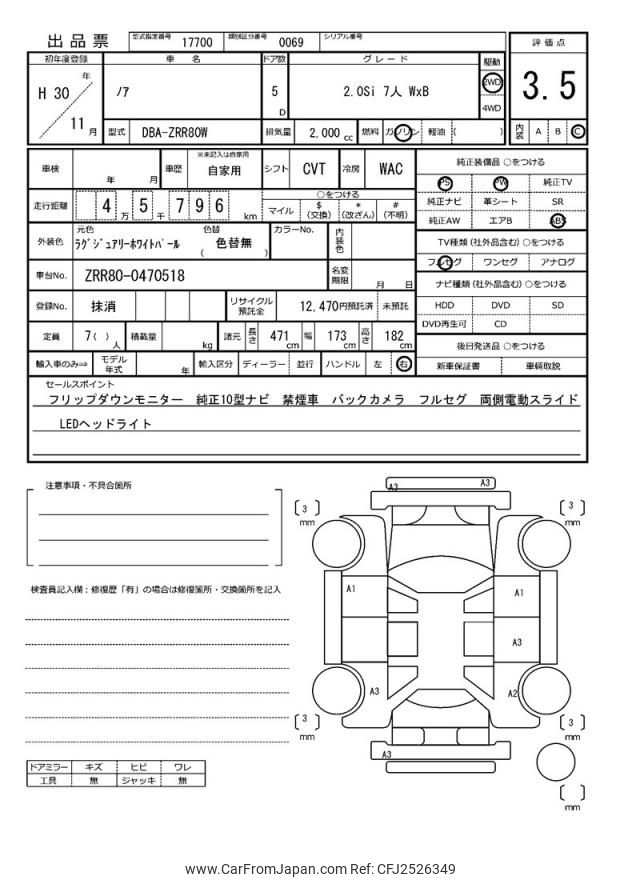 出品票 型式指定番号 17700 類別区分番号 0069 シリアル番号
評価点
3.5
内装 A B C
初年度登録 車名 ドア数 グレード 駆動
H 30 年 ノア 5 D 2.0Si 7人 WxB 2WD
4WD
11 月 型式 DBA-ZRR80W 排気量 2,000 cc 燃料 ガソリン 軽油 ( )
車検 年 月 車歴 ※未記入は自家用 自家用 シフト CVT 冷房 WAC
走行距離 4 万 5 千 7 9 6 km
○をつける
マイル $ (交換) * (改ざん) # (不明)
外装色 元色 ラグジュアリーホワイトパール 色替 ( 色替無 ) カラーNo. 内装色
車台No. ZRR80-0470518 名変期限 月 日
登録No. 抹消 リサイクル預託金 12,470円預託済 未預託
定員 7( ) 人 積載量 kg 諸元 長さ 471 cm 幅 173 cm 高さ 182 cm
輸入車のみ⇒ モデル年式 年 輸入区分 ディーラー 並行 ハンドル 左 右
純正装備品 ○をつける
PS PW 純正TV
純正ナビ 革シート SR
純正AW エアB ABS
TV種類(社外品含む) ○をつける
フルセグ ワンセグ アナログ
ナビ種類(社外品含む) ○をつける
HDD DVD SD
DVD再生可 CD
後日発送品 ○をつける
新車保証書 車輌取説
セールスポイント
フリップダウンモニター 純正10型ナビ 禁煙車 バックカメラ フルセグ 両側電動スライド
LEDヘッドライト
注意事項・不具合箇所
検査員記入欄：修復歴「有」の場合は修復箇所・交換箇所を記入
ドアミラー キズ ヒビ ワレ
工具 無 ジャッキ 無
A3 A3
[ 3 ] mm [ 3 ] mm
A1 A1
A3
A3 A2
[ 3 ] mm [ 3 ] mm
A3
[ ] mm
www.CarFromJapan.com Ref: CFJ2526349